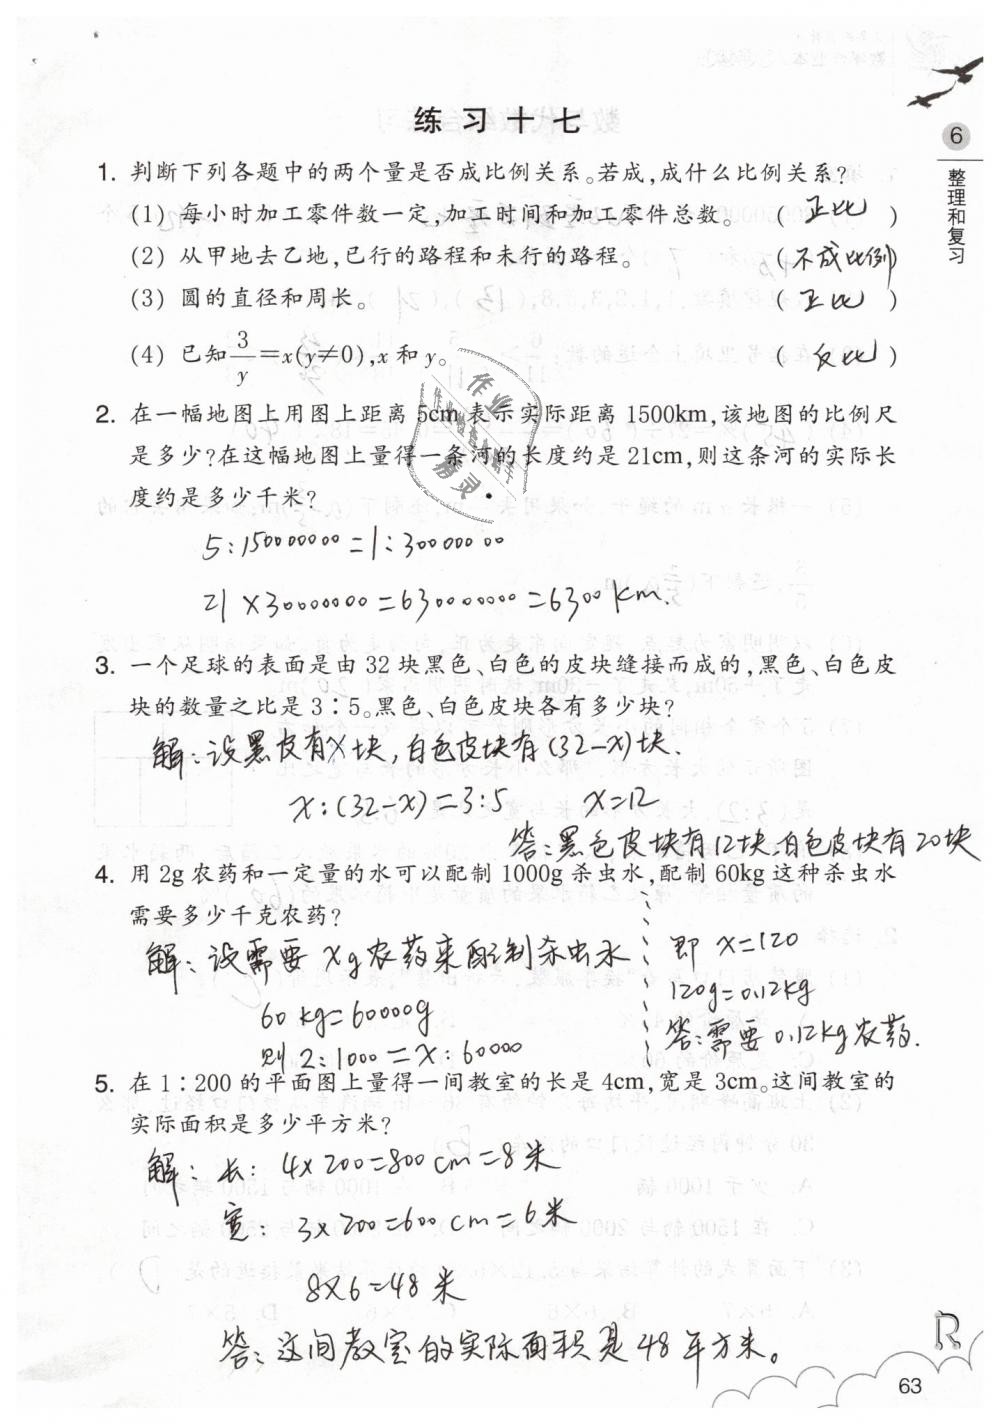 练习十七
6
整理和复习
1. 判断下列各题中的两个量是否成比例关系。若成,成什么比例关系?
(1) 每小时加工零件数一定,加工时间和加工零件总数。 ( 正比 )
(2) 从甲地去乙地,已行的路程和未行的路程。 (不成比例)
(3) 圆的直径和周长。 ( 正比 )
(4) 已知3/y=x(y≠0),x和y。 ( 反比 )
2. 在一幅地图上用图上距离5cm表示实际距离1500km,该地图的比例尺
是多少?在这幅地图上量得一条河的长度约是21cm,则这条河的实际长
度约是多少千米?
5:150000000=1:30000000
21×30000000=630000000=6300km.
3. 一个足球的表面是由32块黑色、白色的皮块缝接而成的,黑色、白色皮
块的数量之比是3∶5。黑色、白色皮块各有多少块?
解:设黑皮有x块,白色皮块有(32-x)块.
x:(32-x)=3:5 x=12
答:黑色皮块有12块,白色皮块有20块
4. 用2g农药和一定量的水可以配制1000g杀虫水,配制60kg这种杀虫水
需要多少千克农药?
解:设需要xg农药来配制杀虫水
60kg=60000g
则2:1000=x:60000
即x=120
120g=0.12kg
答:需要0.12kg农药.
5. 在1∶200的平面图上量得一间教室的长是4cm,宽是3cm。这间教室的
实际面积是多少平方米?
解:长:4×200=800cm=8米
宽:3×200=600cm=6米
8×6=48米
答:这间教室的实际面积是48平方米。
R
63